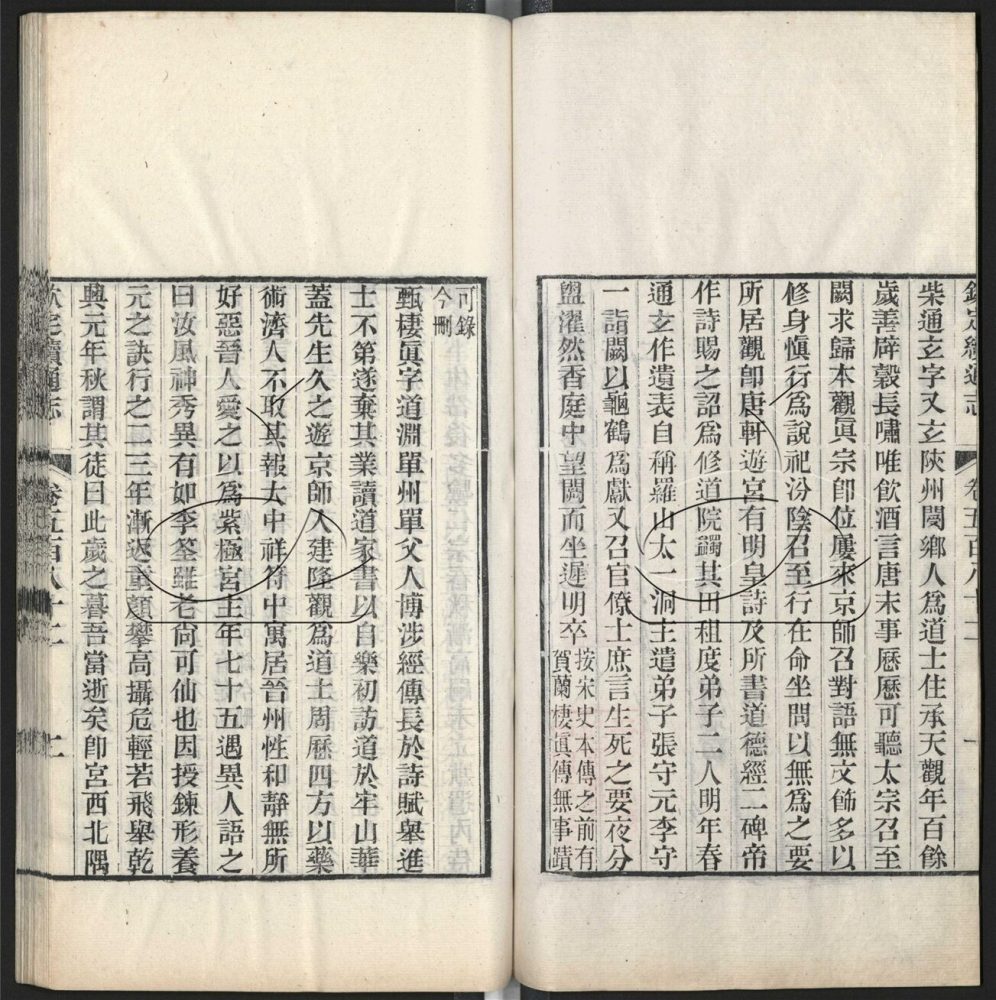 欽定續通志 卷五百八十二 一
柴通玄字又玄陝州閿鄉人爲道士住承天觀年百餘
歲善辟穀長嘯唯飲酒言唐末事歷歷可聽太宗召至
闕求歸本觀眞宗卽位屢來京師召對語無文飾多以
修身愼行爲說祀汾陰召至行在命坐問以無爲之要
所居觀卽唐軒遊宮有明皇詩及所書道德經二碑帝
作詩賜之詔爲修道院蠲其田租度弟子二人明年春
通玄作遺表自稱羅山太一洞主遣弟子張守元李守
一詣闕以龜鶴爲獻又召官僚士庶言生死之要夜分
盥濯然香庭中望闕而坐遲明卒
按宋史本傳之前有
賀蘭棲眞傳無事蹟
可錄
今刪
甄棲眞字道淵單州單父人博涉經傳長於詩賦舉進
士不第遂棄其業讀道家書以自樂初訪道於牢山華
蓋先生久之遊京師入建隆觀爲道士周歷四方以藥
術濟人不取其報大中祥符中寓居晉州性和靜無所
好惡晉人愛之以爲紫極宮主年七十五遇異人語之
曰汝風神秀異有如李筌雖老尙可仙也因授鍊形養
元之訣行之二三年漸返童顏攀高攝危輕若飛舉乾
興元年秋謂其徒曰此歲之暮吾當逝矣卽宮西北隅
欽定續通志 卷五百八十二 二